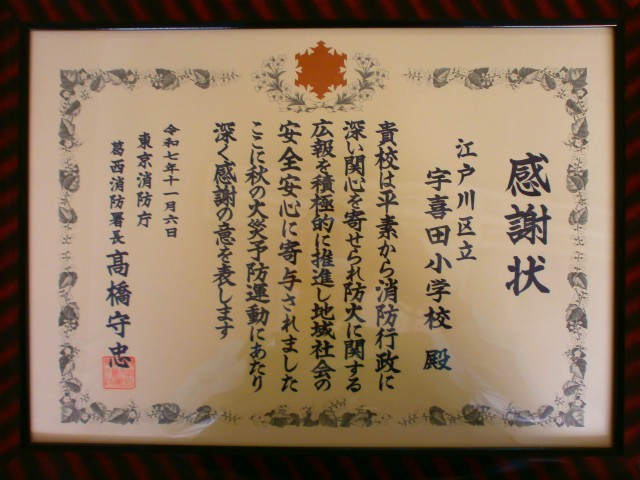 感謝状
江戸川区立
宇喜田小学校 殿
貴校は平素から消防行政に
深い関心を寄せられ防火に関する
広報を積極的に推進し地域社会の
安全安心に寄与されました
ここに秋の火災予防運動にあたり
深く感謝の意を表します
令和七年十一月六日
東京消防庁
葛西消防署長 髙橋守忠